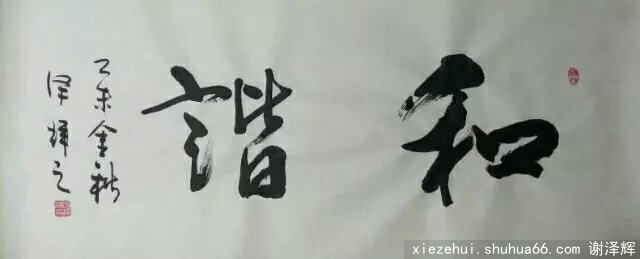 和諧
乙未金秋
泽辉之
xiezehui.shuhua66.com 谢泽辉